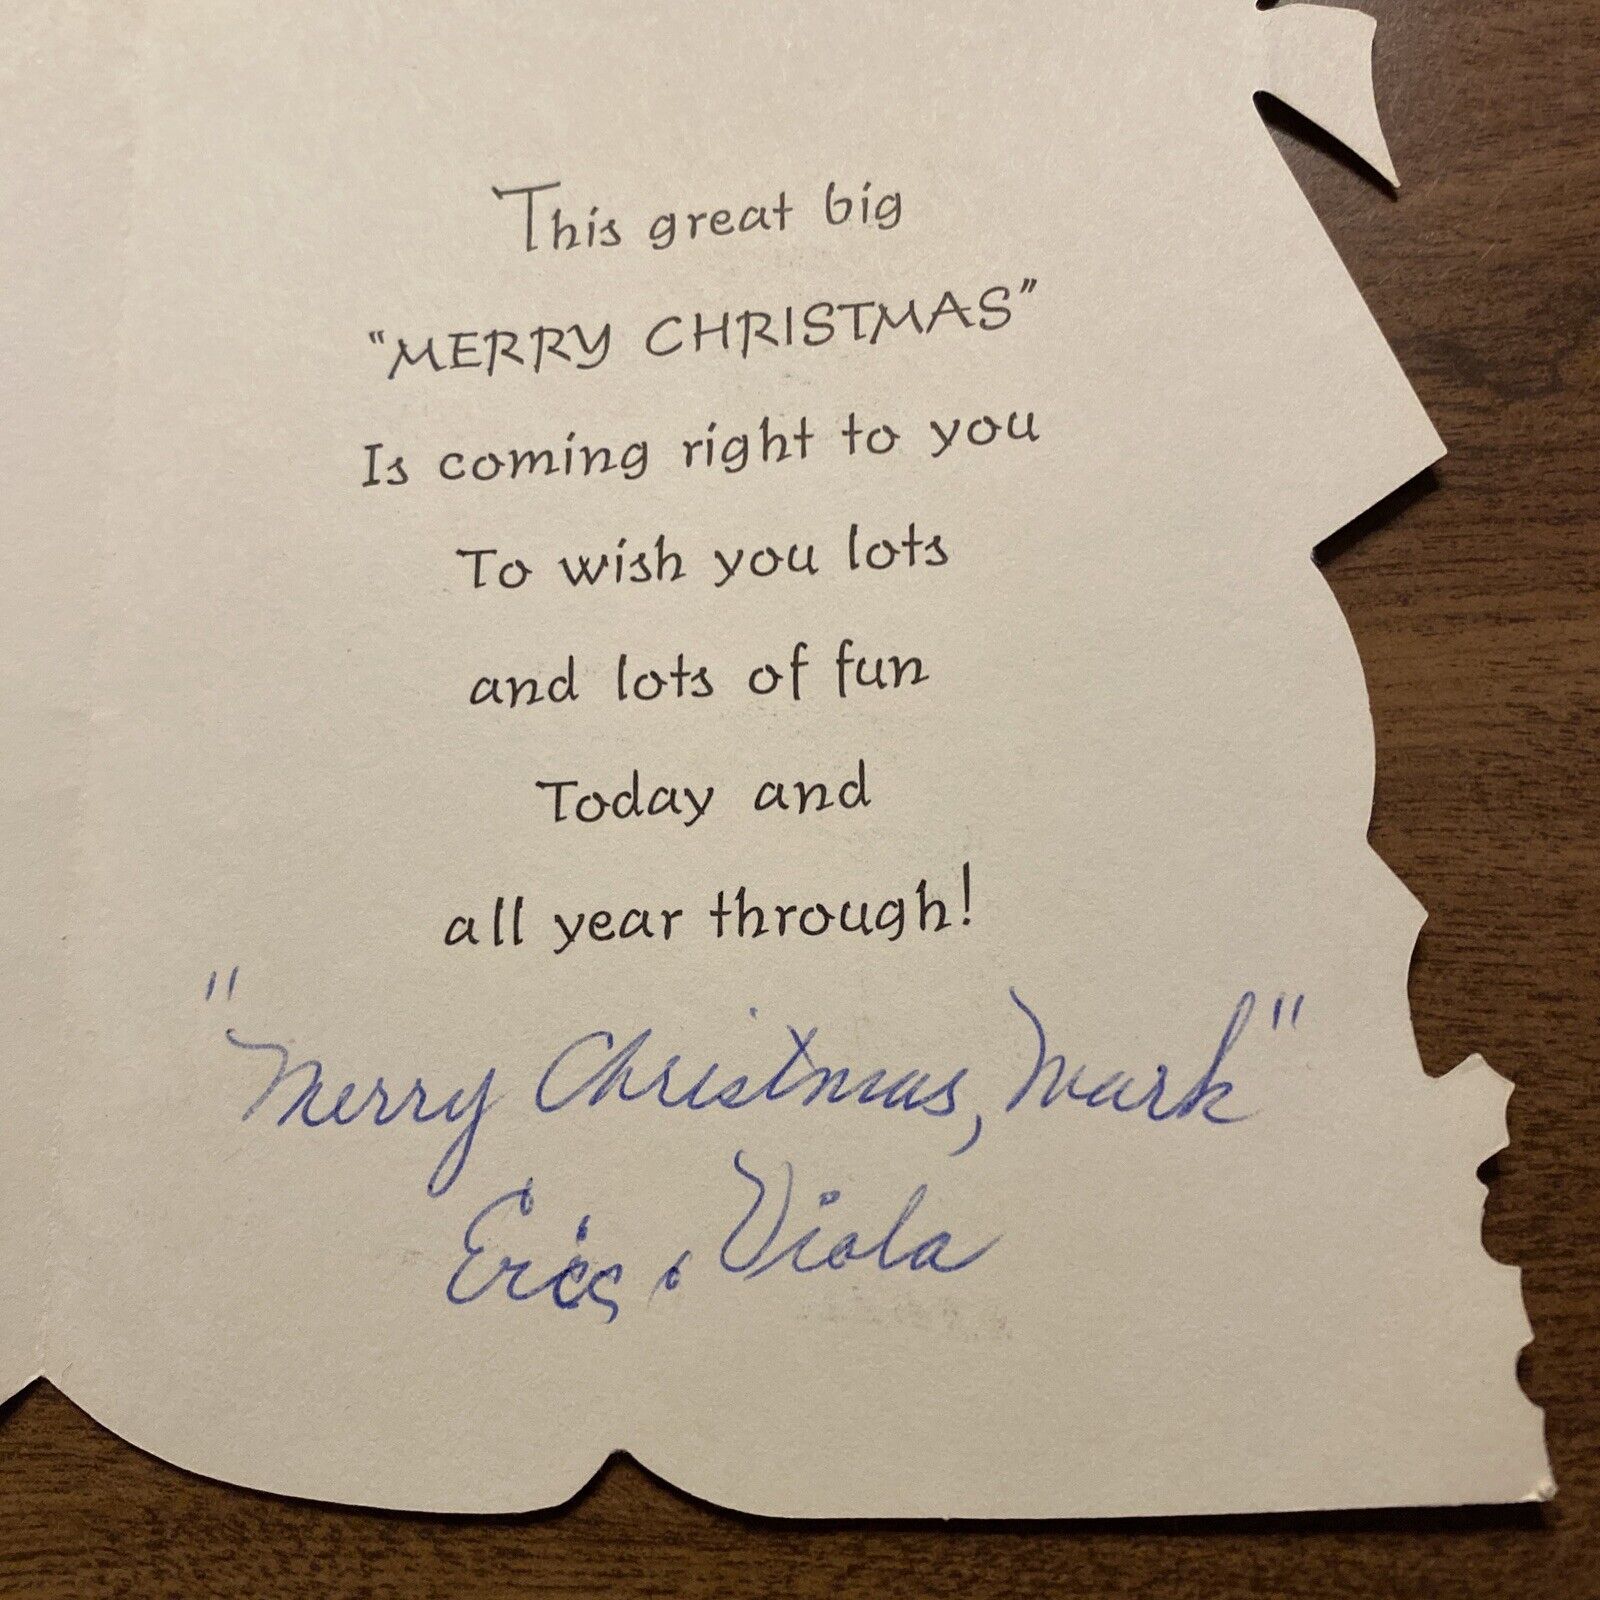 This great big
"MERRY CHRISTMAS"
Is coming right to you
To wish you lots
and lots of fun
Today and
all year through!
"Merry Christmas, Mark"
Viola